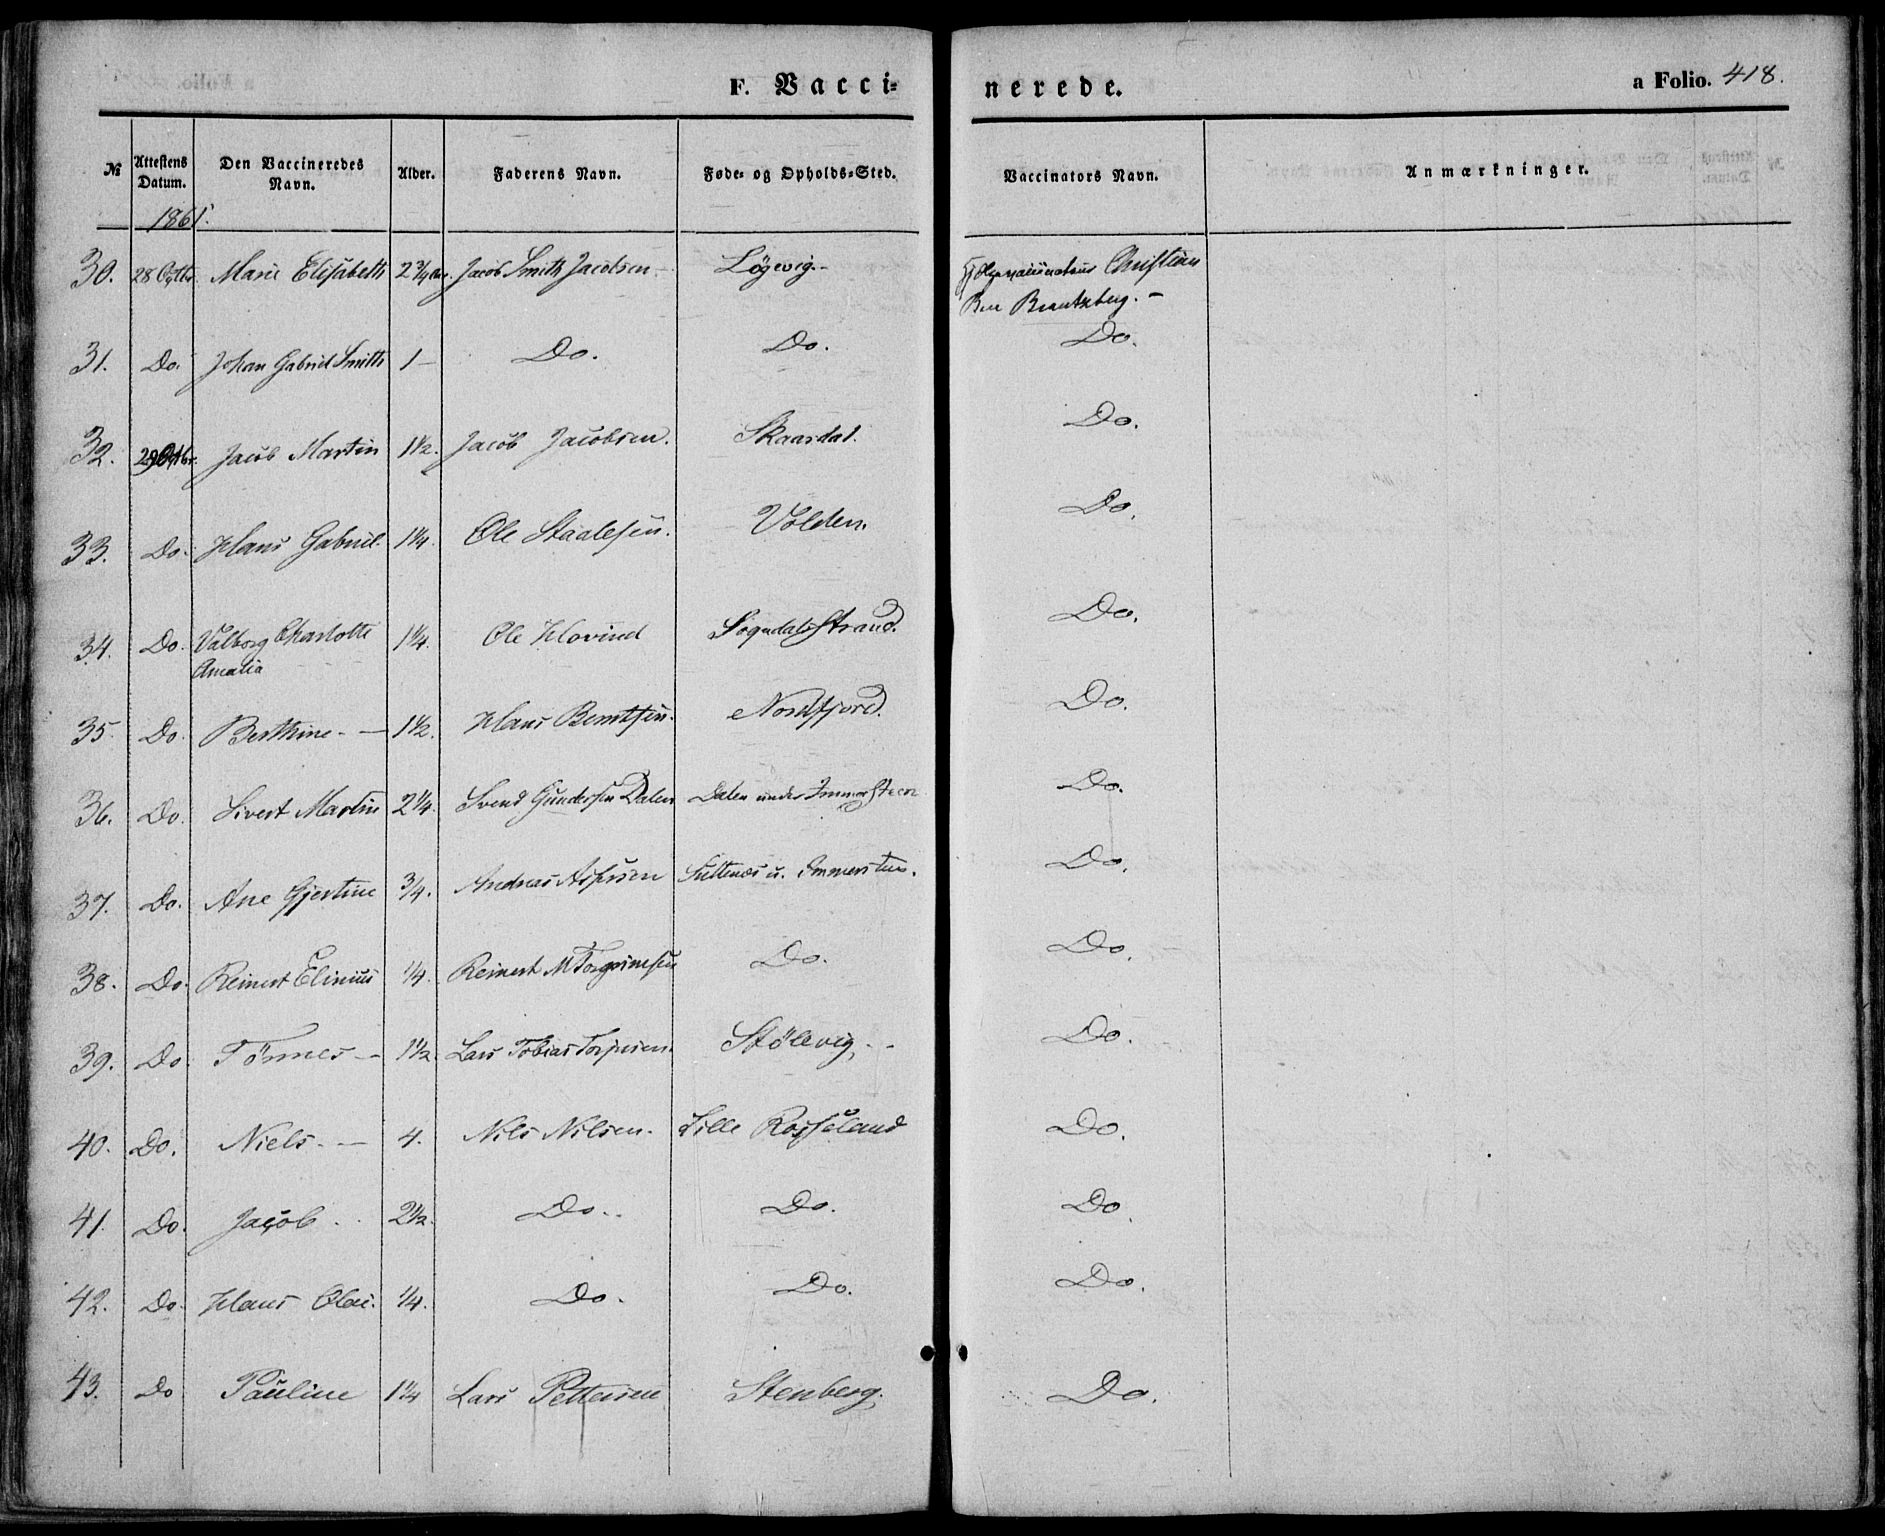 F. Vacci-
nerede.
a Folio. 418.
№ Attestens Datum. Den Vaccineredes Navn. Alder. Faderens Navn. Føde- og Opholds-Sted. Vaccinators Navn. Anmærkninger.
1861.
30. 28 Octbr. Marie Elisabeth 2 3/4 Jacob Smith Jacobsen Løgevig. Christian
Do.
31. Do. Johan Gabriel Smith 1 Do. Do. Do.
32. 29 Octbr. Jacob Martin 1 1/2. Jacob Jacobsen. Skaardal. Do.
33. Do. Hans Gabriel. 1 1/4. Ole Staalesen. Volden. Do.
34. Do. Valborg Charlotte 1 1/4. Ole Hovind Sogndalsstrand. Do.
Amalia
35. Do. Berthine. 1 1/2. Hans Berntsen. Nordfjord. Do.
36. Do. Sivert Martin 2 1/4. Svend Gundersen Dalen Dalen under Immersteen Do.
37. Do. Ane Gjertine 3/4. Andreas u. Immersteen. Do.
38. Do. Reinert Elinius 1/4. Reinert M Torgrimsen Do. Do.
39. Do. Tönnes 1 1/2. Lars Tobias Stölevig. Do.
40. Do. Niels. 4. Nils Nilsen. Lille Rosseland Do.
41. Do. Jacob. 2 1/2. Do. Do. Do.
42. Do. Hans Olai. 1/4. Do. Do. Do.
43. Do Pauline 1 1/4 Lars Pettersen Stenberg. Do.